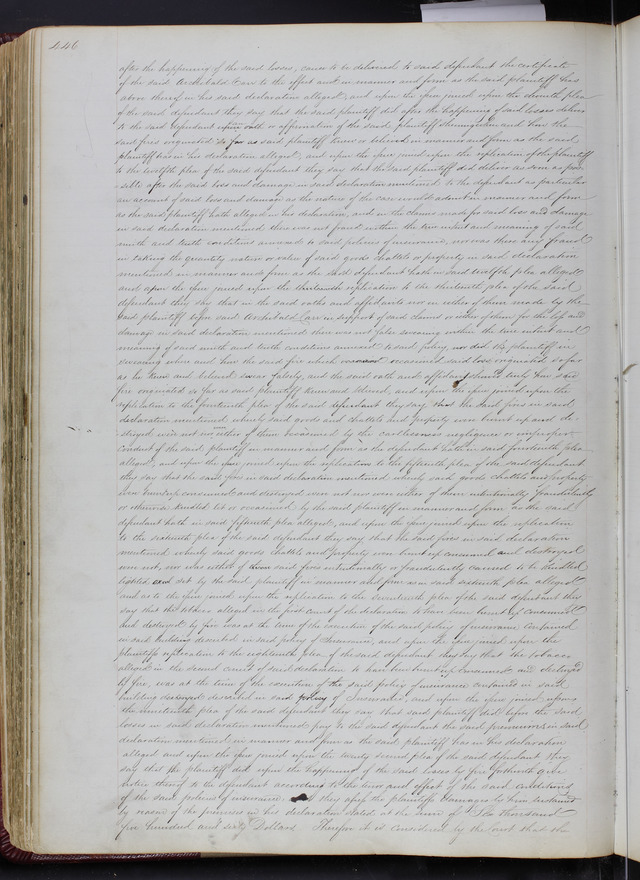 446
after the happening of the said losses, cause to be delivered to said defendant the certificate
of the said Archibald Carr to the effect and in manner and form as the said plaintiff has
above thereof in his said declaration alleged, and upon the issue joined upon the eleventh plea
of the said defendant they say that the said plaintiff did after the happening of said losses deliver
to the said defendant upon oath or affirmation of the said plaintiff showing when and how the
said fires originated so far as said plaintiff knew or believed in manner and form as the said
plaintiff has in his declaration alleged, and upon the issue joined upon the replication of the plaintiff
to the twelfth plea of the said defendant they say that the said plaintiff did deliver as soon as pos-
sible after the said loss and damage in said declaration mentioned to the defendant as particular
an account of said loss and damage as the nature of the case would admit in manner and form
as the said plaintiff hath alleged in his declaration, and in the claims made for said loss and damage
in said declaration mentioned there was not fraud within the true intent and meaning of said
ninth and tenth conditions annexed to said policies of insurance, nor was there any fraud
in taking the quantity nature or value of said goods chattels or property in said declaration
mentioned in manner and form as the said defendant hath in said twelfth plea alleged
and upon the issue joined upon the thirteenth replication to the thirteenth plea of the said
defendant they say that in the said oaths and affidavits nor in either of them made by the
said plaintiff before said Archibald Carr in support of said claims or either of them for the loss and
damage in said declaration mentioned there was not false swearing within the true intent and
meaning of said ninth and tenth conditions annexed to said policy, nor did the plaintiff in
swearing when and how the said fire which occasioned said loss originated so far
as he knew and believed swear falsely, and the said oath and affidavit shows truly how said
fire originated so far as said plaintiff knew and believed, and upon the issue joined upon the
replication to the fourteenth plea of the said defendant they say that the said fires in said
declaration mentioned whereby said goods and chattels and property were burnt up and de-
stroyed were not nor either of them occasioned by the carelessness negligence or improper
conduct of the said plaintiff in manner and form as the defendant hath in said fourteenth plea
alleged, and upon the issue joined upon the replication to the fifteenth plea of the said defendant
they say that the said fires in said declaration mentioned whereby said goods chattels and property
were burnt up consumed and destroyed were not nor were either of them intentionally fraudulently
or otherwise kindled lit or occasioned by the said plaintiff in manner and form as the said
defendant hath in said fifteenth plea alleged, and upon the issue joined upon the replication
to the sixteenth plea of the said defendant they say that the said fires in said declaration
mentioned whereby said goods chattels and property were burnt up consumed and destroyed
were not, nor was either of them said fires intentionally or fraudulently caused to be kindled
lighted and set by the said plaintiff in manner and form as in said sixteenth plea alleged
and as to the issue joined upon the replication to the seventeenth plea of the said defendant they
say that the tobacco alleged in the first count of the declaration to have been burnt up consumed
and destroyed by fire was at the time of the execution of the said policy of insurance contained
in said building described in said policy of Insurance, and upon the issue joined upon the
plaintiffs replication to the eighteenth plea of the said defendant they say that the tobacco
alleged in the second count of said declaration to have been burnt up consumed and destroyed
by fire, was at the time of the execution of the said policy of insurance contained in said
building described in said policy of Insurance, and upon the issue joined upon
the nineteenth plea of the said defendant they say that said plaintiff did upon the said
losses in said declaration mentioned, pay to the said defendant the said premiums in said
declaration mentioned in manner and form as the said plaintiff has in his declaration
alleged and upon the issue joined upon the twenty second plea of the said defendant they
say that the plaintiff did upon the happening of the said losses by fire forthwith give
notice thereof to the defendant according to the tenor and effect of the said conditions
of the said policies of insurance and they assess the plaintiffs damages by him sustained
by reason of the premises in his declaration stated at the sum of thousand
five hundred and sixty Dollars Therefore it is considered by the court that the